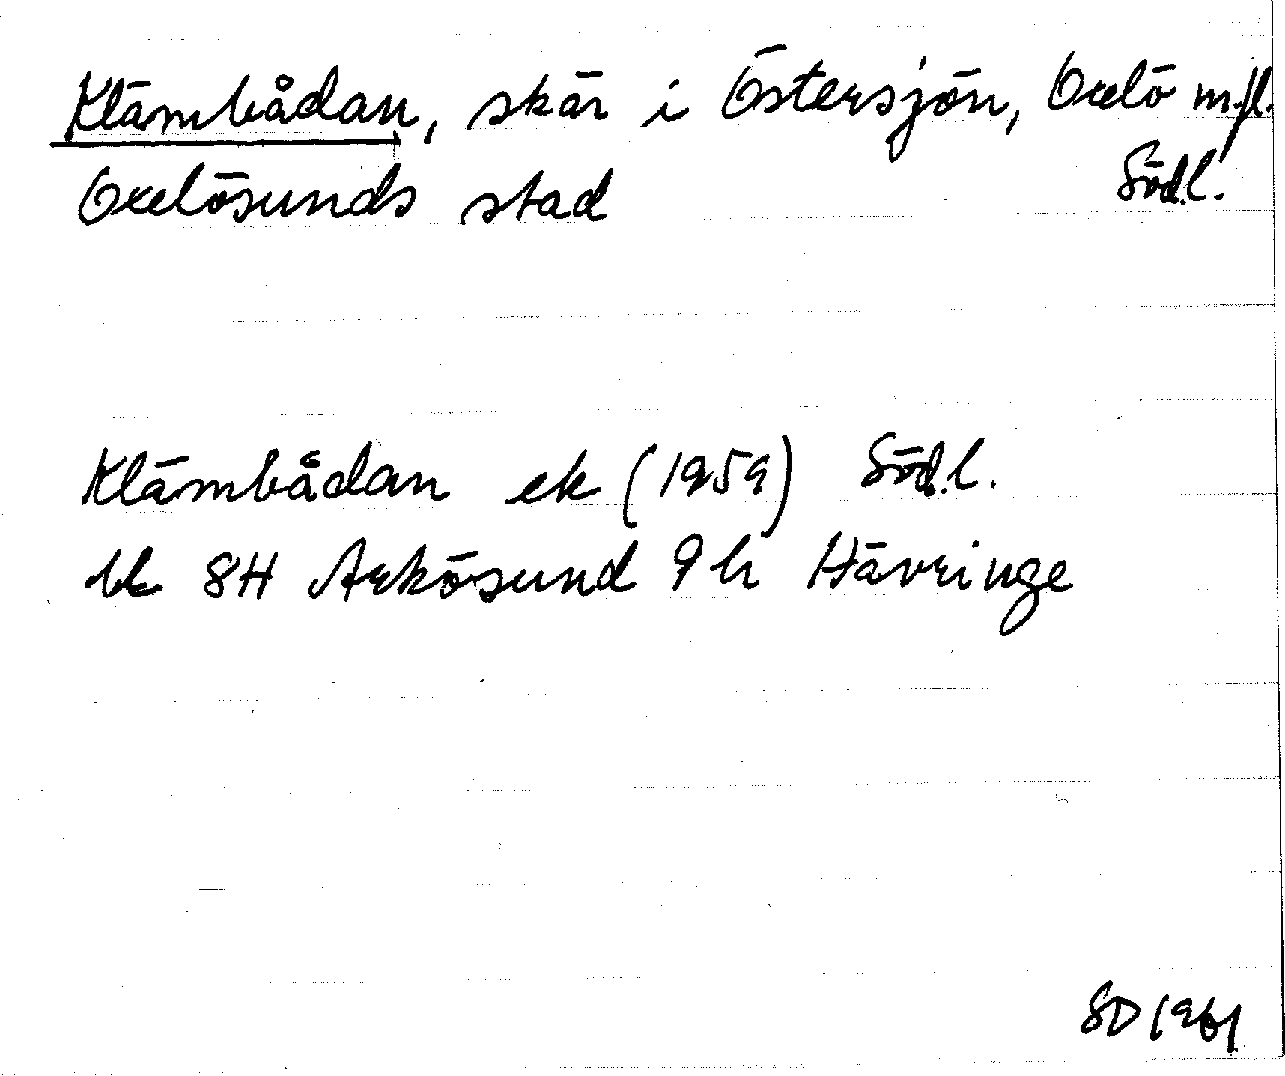 Klämbådan, skär i Östersjön, Oxelö m.fl.
Oxelösunds stad Södl.
Klämbådan ek (1959) Södl.
bl 8H Arkösund 9h Hävringe
SD 1961